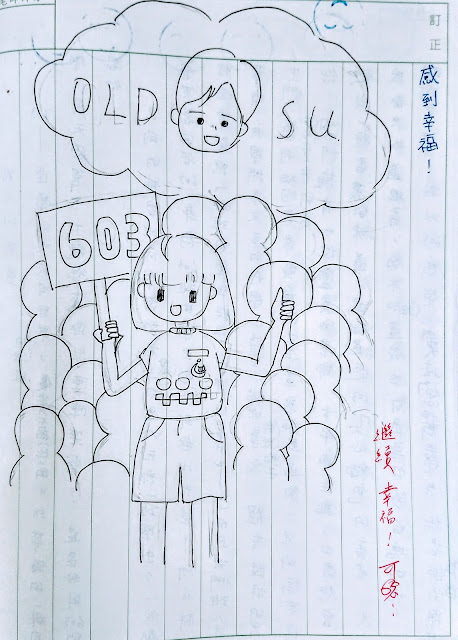 訂正
感到幸福!
繼續幸福!
OLD SU
603